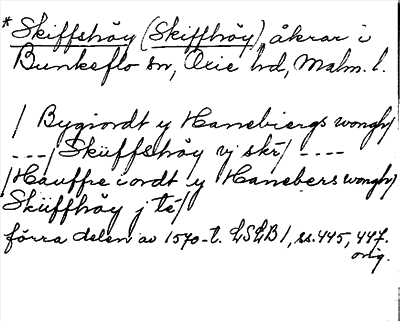 * Skiffshöy (Skiffhöy), åkrar i
Bunkeflo sn, Oxie hd, Malm. l.
/ Bygiordt y Hannebiergs wongh/
---/ Skiiffshöy vj skr/ ----
/Hauffre iordt y Hannebers wongh/
Skiiffhöy j té/
förra delen av 1570-t. LSLB 1, ss. 445, 447.
orig.